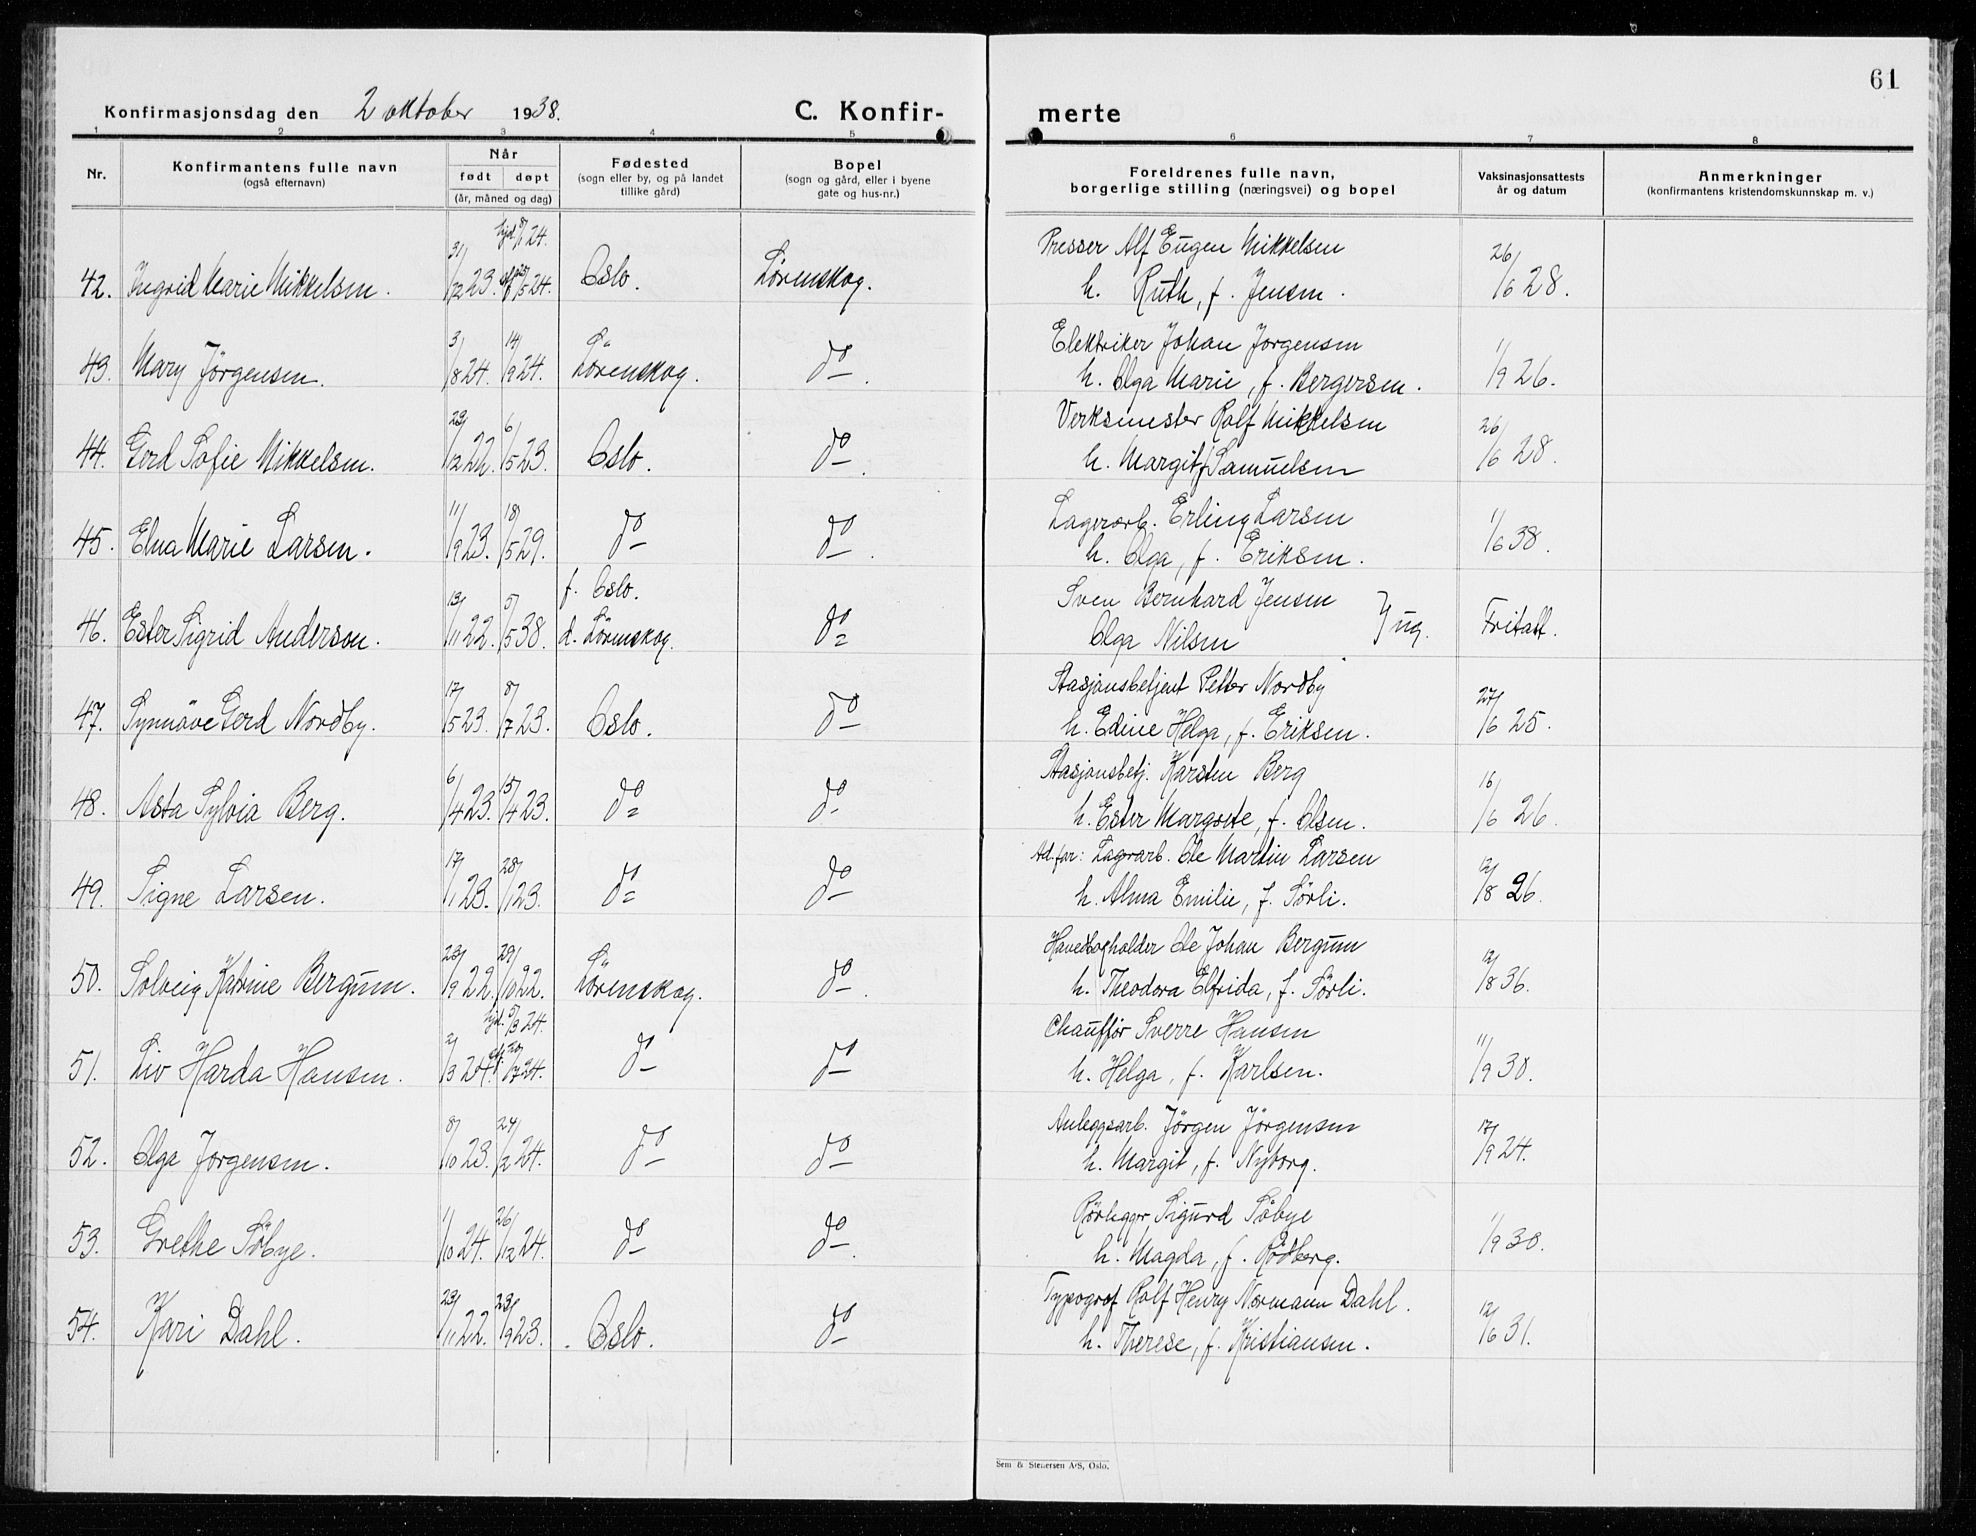 61
Konfirmasjonsdag den 2 oktober 1938. C. Konfir-merte
1 2 3 4 5 6 7 8
Nr. Konfirmantens fulle navn (også efternavn) Når født døpt (år, måned og dag) Fødested (sogn eller by, og på landet tillike gård) Bopel (sogn og gård, eller i byene gate og hus-nr.) Foreldrenes fulle navn, borgerlige stilling (næringsvei) og bopel Vaksinasjonsattests år og datum Anmerkninger (konfirmantens kristendomskunnskap m. v.)
hjd. 8/1 24.
Presser Alf Eugen Mikkelsen
42. Ingrid Marie Mikkelsen. 31/12 23. 5 24. Oslo. Lørenskog. h. Ruth, f. Jensen. 26/6 28.
Elektriker Johan Jørgensen
43. Mary Jørgensen. 3/8 24. 14/9 24. Lørenskog. do h. Olga Marie, f. Bergersen. 1/9 26.
Verksmester Rolf Mikkelsen
44. Gerd Sofie Mikkelsen. 29/12 22. 6/5 23. Oslo. do h. Margit f. Samuelsen 26/6 28.
Lagerarb. Erling Larsen
45. Elna Marie Larsen. 11/9 23. 18/5 29. do do h. Olga, f. Eriksen. 1/6 38.
f. Oslo. Sven Bernhard Jensen
46. Ester Sigrid Anderson. 13/11 22. 5/5 38. d. Lørenskog. do Olga Nilsen } ug. Fritatt.
Stasjonsbetjent Petter Nordby
47. Synnøve Gerd Nordby. 17/5 23. 8/7 23. Oslo. do h. Edine Helga, f. Eriksen. 27/6 25.
Stasjonsbetj. Karsten Berg
48. Asta Sylvia Berg. 6/4 23. 15/4 23. do do h. Ester Margrete, f. Olsen. 16/6 26.
Ad.far: Lagerarb. Ole Martin Larsen
49. Signe Larsen. 17/1 23. 28/1 23. do do h. Alma Emilie, f. Sørli. 12/8 26.
Hovedbogholder Ole Johan Bergum
50. Solveig Katrine Bergum. 23/9 22. 29/10 22. Lørenskog. do h. Theodora Elfrida, f. Sørli. 12/8 36.
hjd. 5/3 24. Chauffør Sverre Hansen
51. Liv Harda Hansen. 2/3 24. 20/7 24. do do h. Helga, f. Karlsen. 11/9 30.
Anleggsarb. Jørgen Jørgensen
52. Olga Jørgensen. 8/10 23. 24/2 24. do do h. Margit, f. Nyborg. 17/9 24.
Rørlegger Sigurd Søbye
53. Grethe Søbye. 1/10 24. 26/12 24. do do h. Magda, f. Rødberg. 1/9 30.
Typograf Rolf Henry Normann Dahl.
54. Kari Dahl. 23/11 22. 23/9 23. Oslo. do h. Therese, f. Kristiansen. 12/6 31.
Sem & Stenersen A/S, Oslo.